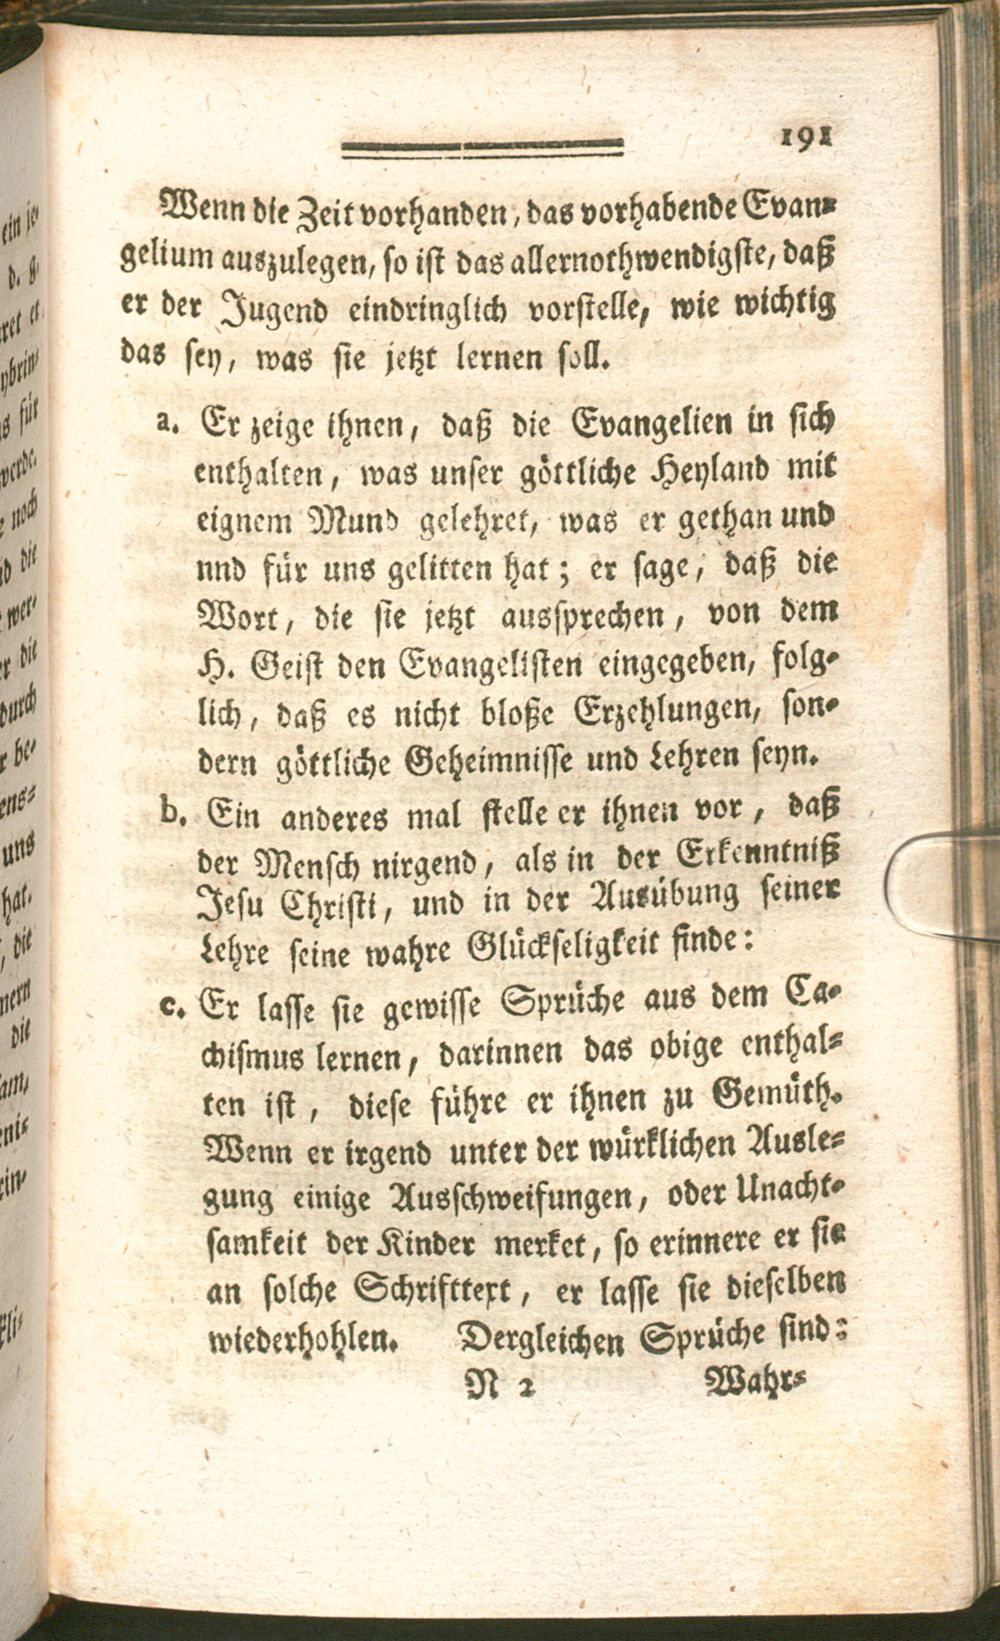 191
Wenn die Zeit vorhanden, das vorhabende Evan-
gelium auszulegen, so ist das allernothwendigste, daß
er der Jugend eindringlich vorstelle, wie wichtig
das sey, was sie jetzt lernen soll.
a. Er zeige ihnen, daß die Evangelien in sich
enthalten, was unser göttliche Heyland mit
eignem Mund gelehret, was er gethan und
nnd für uns gelitten hat; er sage, daß die
Wort, die sie jetzt aussprechen, von dem
H. Geist den Evangelisten eingegeben, folg-
lich, daß es nicht bloße Erzehlungen, son-
dern göttliche Geheimnisse und Lehren seyn.
b. Ein anderes mal stelle er ihnen vor, daß
der Mensch nirgend, als in der Erkenntniß
Jesu Christi, und in der Ausübung seiner
Lehre seine wahre Glückseligkeit finde:
c. Er lasse sie gewisse Sprüche aus dem Ca-
chismus lernen, darinnen das obige enthal-
ten ist, diese führe er ihnen zu Gemüth.
Wenn er irgend unter der würklichen Ausle-
gung einige Ausschweifungen, oder Unacht-
samkeit der Kinder merket, so erinnere er sie
an solche Schrifttext, er lasse sie dieselben
wiederhohlen. Dergleichen Sprüche sind:
N 2 Wahr-